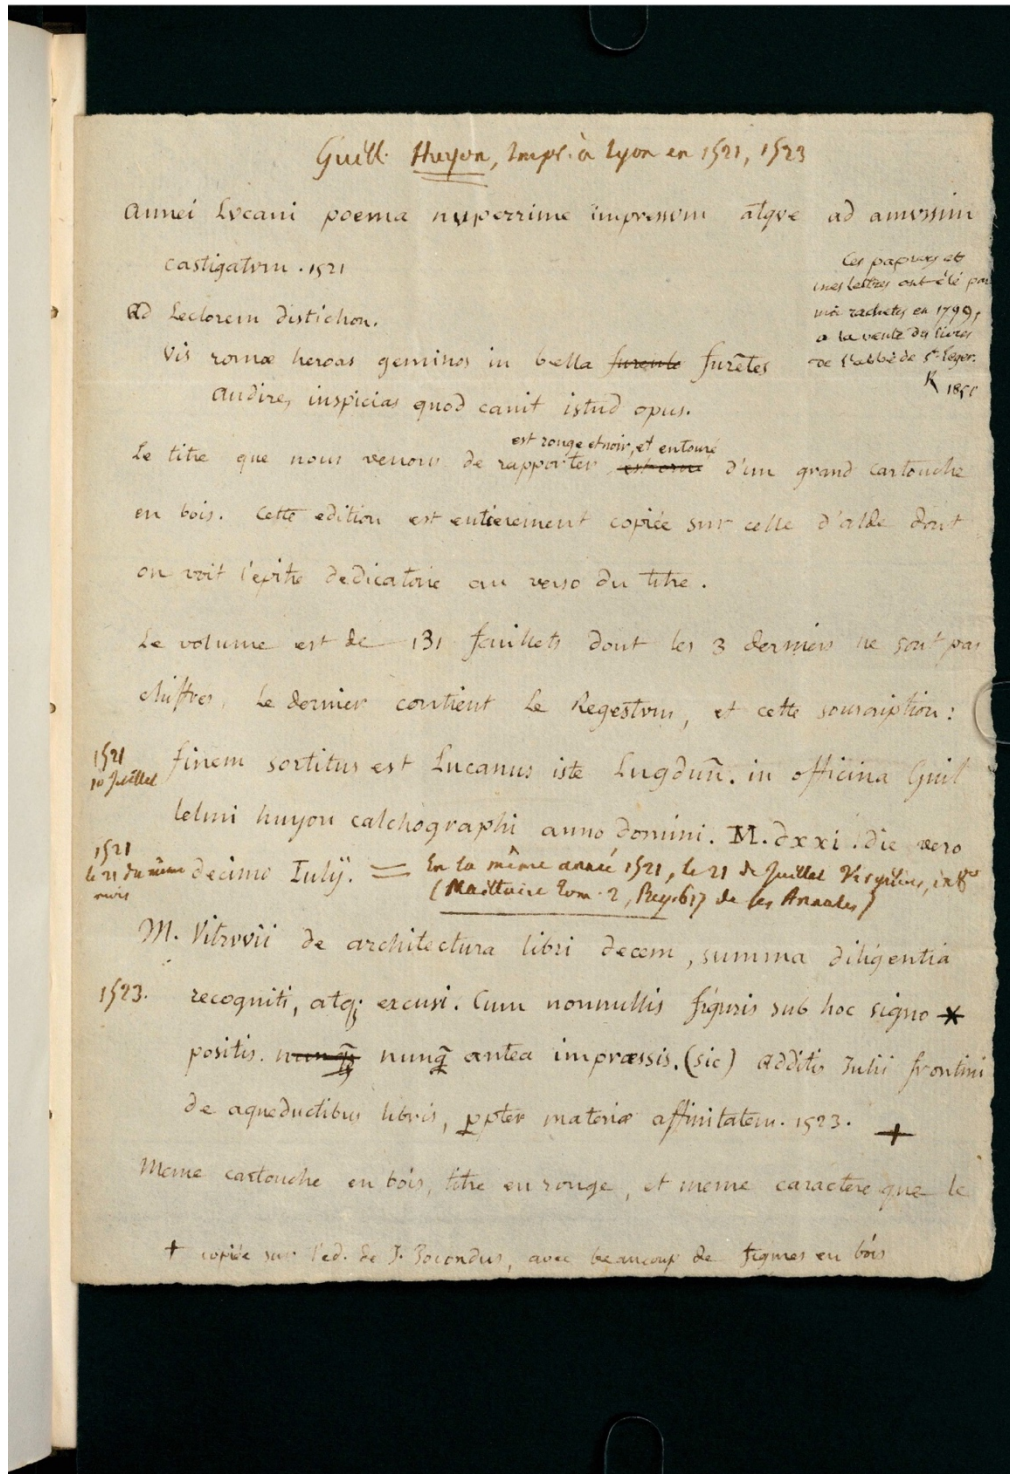 Guill. Huyon, Impr. à Lyon en 1521, 1523
Annei Lvcani poema nuperrime impressvm atqve ad amvssim
castigatvm. 1521
Ces papiers et
mes lettres ont été par
moi rachetés en 1799,
a la vente des livres
de l'abbé de St Léger.
Ad Lectorem distichon.
Vis romæ heroas geminos in bella furente furētes
Audire, inspicias quod canit istud opus.
Le titre que nous venons de rapporter est orné est rouge et noir, et entouré d'un grand cartouche
en bois. Cette edition est entierement copiée sur celle d'alde dont
on voit l'epitre dedicatoire au verso du titre.
Le volume est de 131 feuillets dont les 3 derniers ne sont pas
chiffres. Le dernier contient le Regestvm, et cette souscription:
1521
10 Juillet
finem sortitus est Lucanus iste Lugduñ. in officina Guil
lelmi huyon calchographi anno domini. M.dxxi. die vero
1521
le 21 du même
mois
decimo Iulij. = En la même année 1521, le 21 de Juillet Virgilius, in 8º
(Maittaire Tom. 2, Pag. 617 de ses Annales)
M. Vitrvvii de architectura libri decem, summa diligentia
1523. recogniti, atq; excusi. Cum nonnullis figuris sub hoc signo *
positis. nunq̃ nunq̃ antea impræssis. (sic) additis Julii frontini
de aqueductibus libris, ꝑpter materiæ affinitatem. 1523. +
Meme cartouche en bois, titre en rouge, et meme caractere que le
+ copiée sur l'ed. de J. Jocondus, avec beaucoup de figures en bois